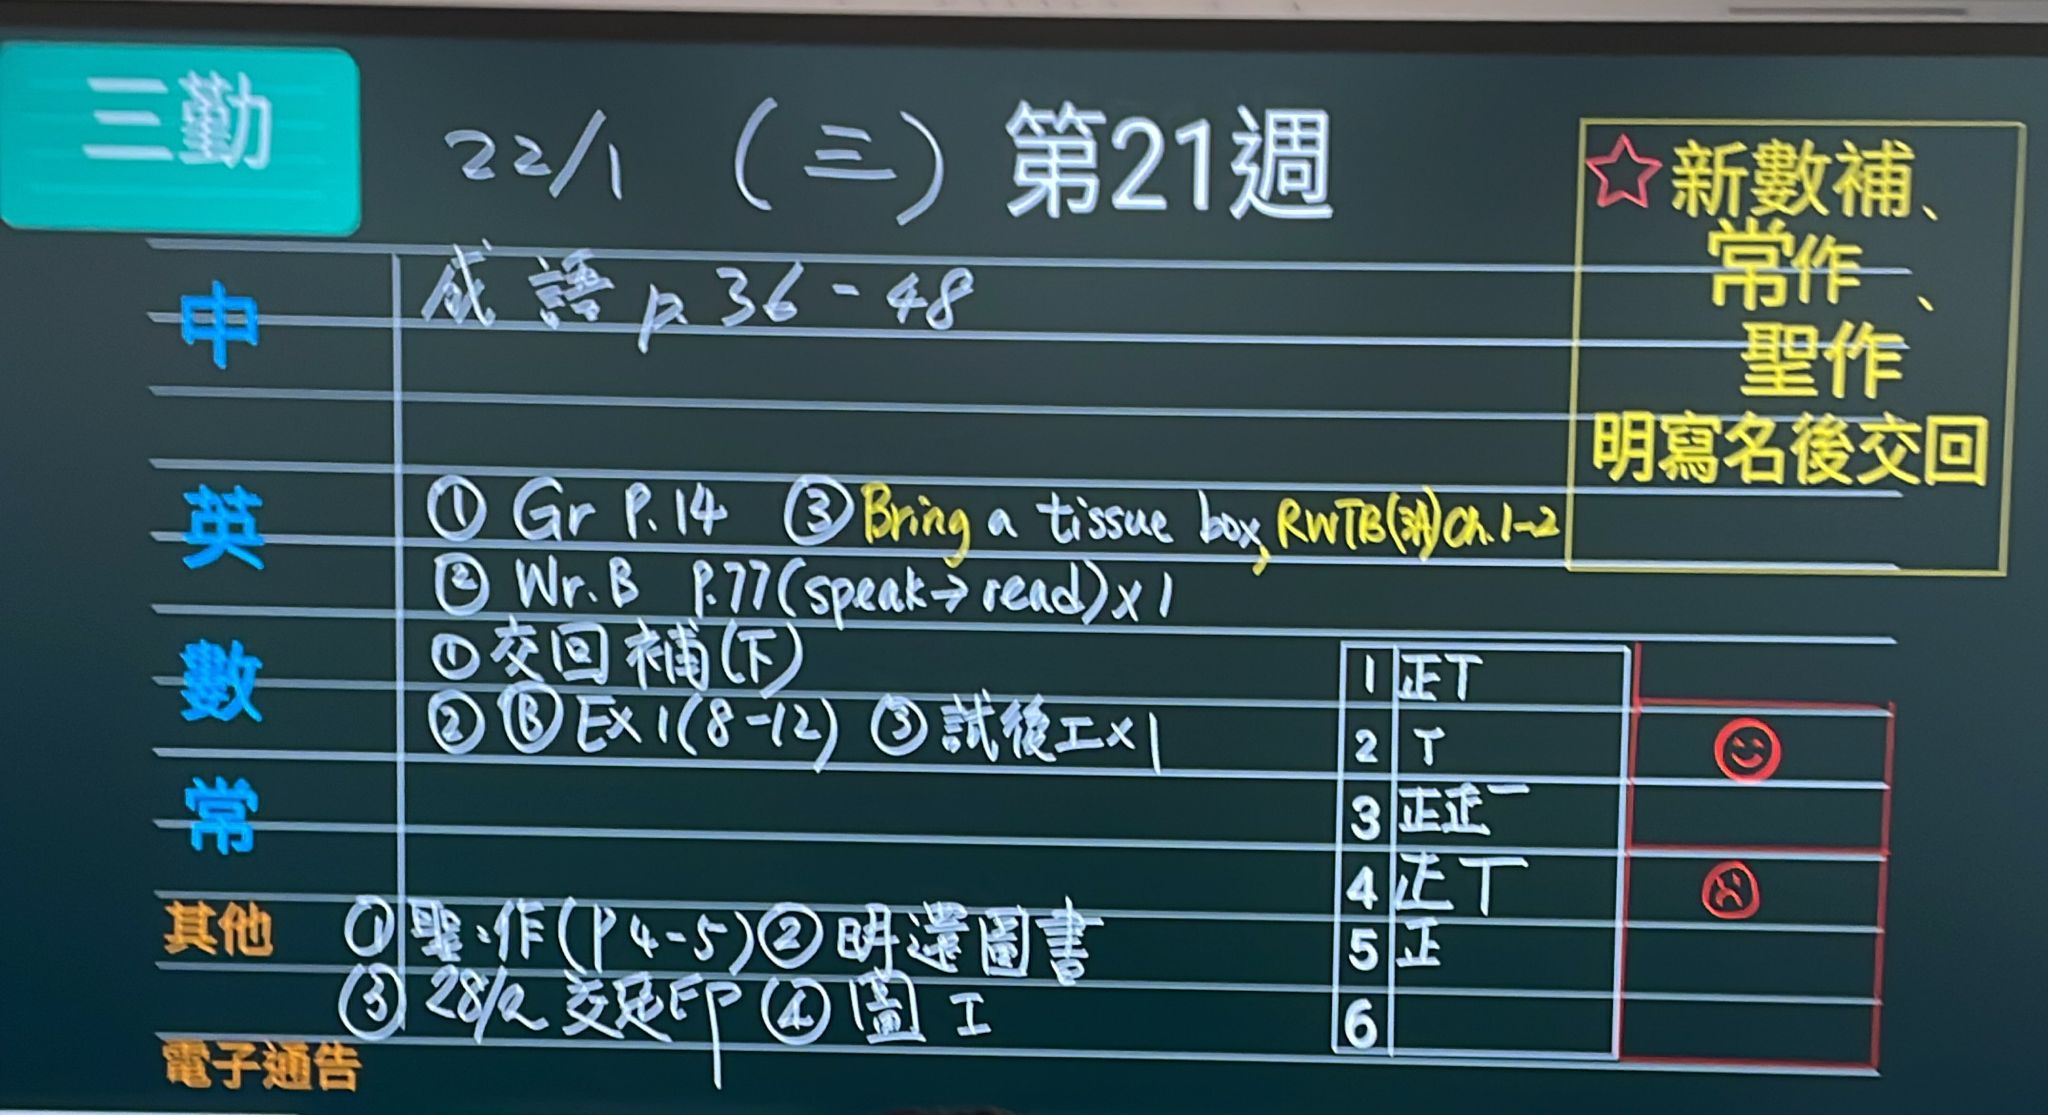 三勤
22/1 (三) 第21週
☆新數補、
常作、
聖作
明寫名後交回
中
成語 p.36-48
英
① Gr P.14 ③ Bring a tissue box, RWTB( )Ch.1-2
② Wr.B P.77(speak→read)×1
數
① 交回補(下)
② Ⓑ Ex1(8-12) ③ 試後工×1
常
其他
① 聖.作(P4-5) ② 明還圖書
③ 28/2 交 ④ 圖工
電子通告
1 正T
2 T
3 正正一
4 正T
5 正
6